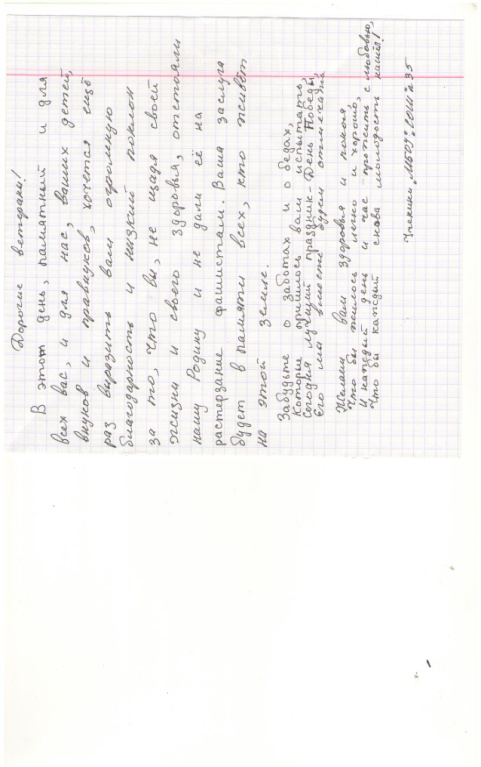 Дорогие ветераны!
В этот день, памятный и для
всех вас, и для нас, ваших детей,
внуков и правнуков, хочется ещё
раз выразить вам огромную
благодарность и низкий поклон
за то, что вы, не щадя своей
жизни и своего здоровья, отстояли
нашу Родину и не дали её на
растерзание фашистам. Ваша заслуга
будет в памяти всех, кто живёт
на этой земле.
Забудьте о заботах и о бедах,
Которые пришлось вам испытать,
Сегодня лучший праздник - День Победы,
Его мы вместе будем отмечать!
Желаем вам здоровья и покоя,
Что бы жилось легко и хорошо,
И каждый день и час - прожить с любовью,
Что бы каждый снова молодость нашёл!
Ученики "МБОУ" СОШ №35